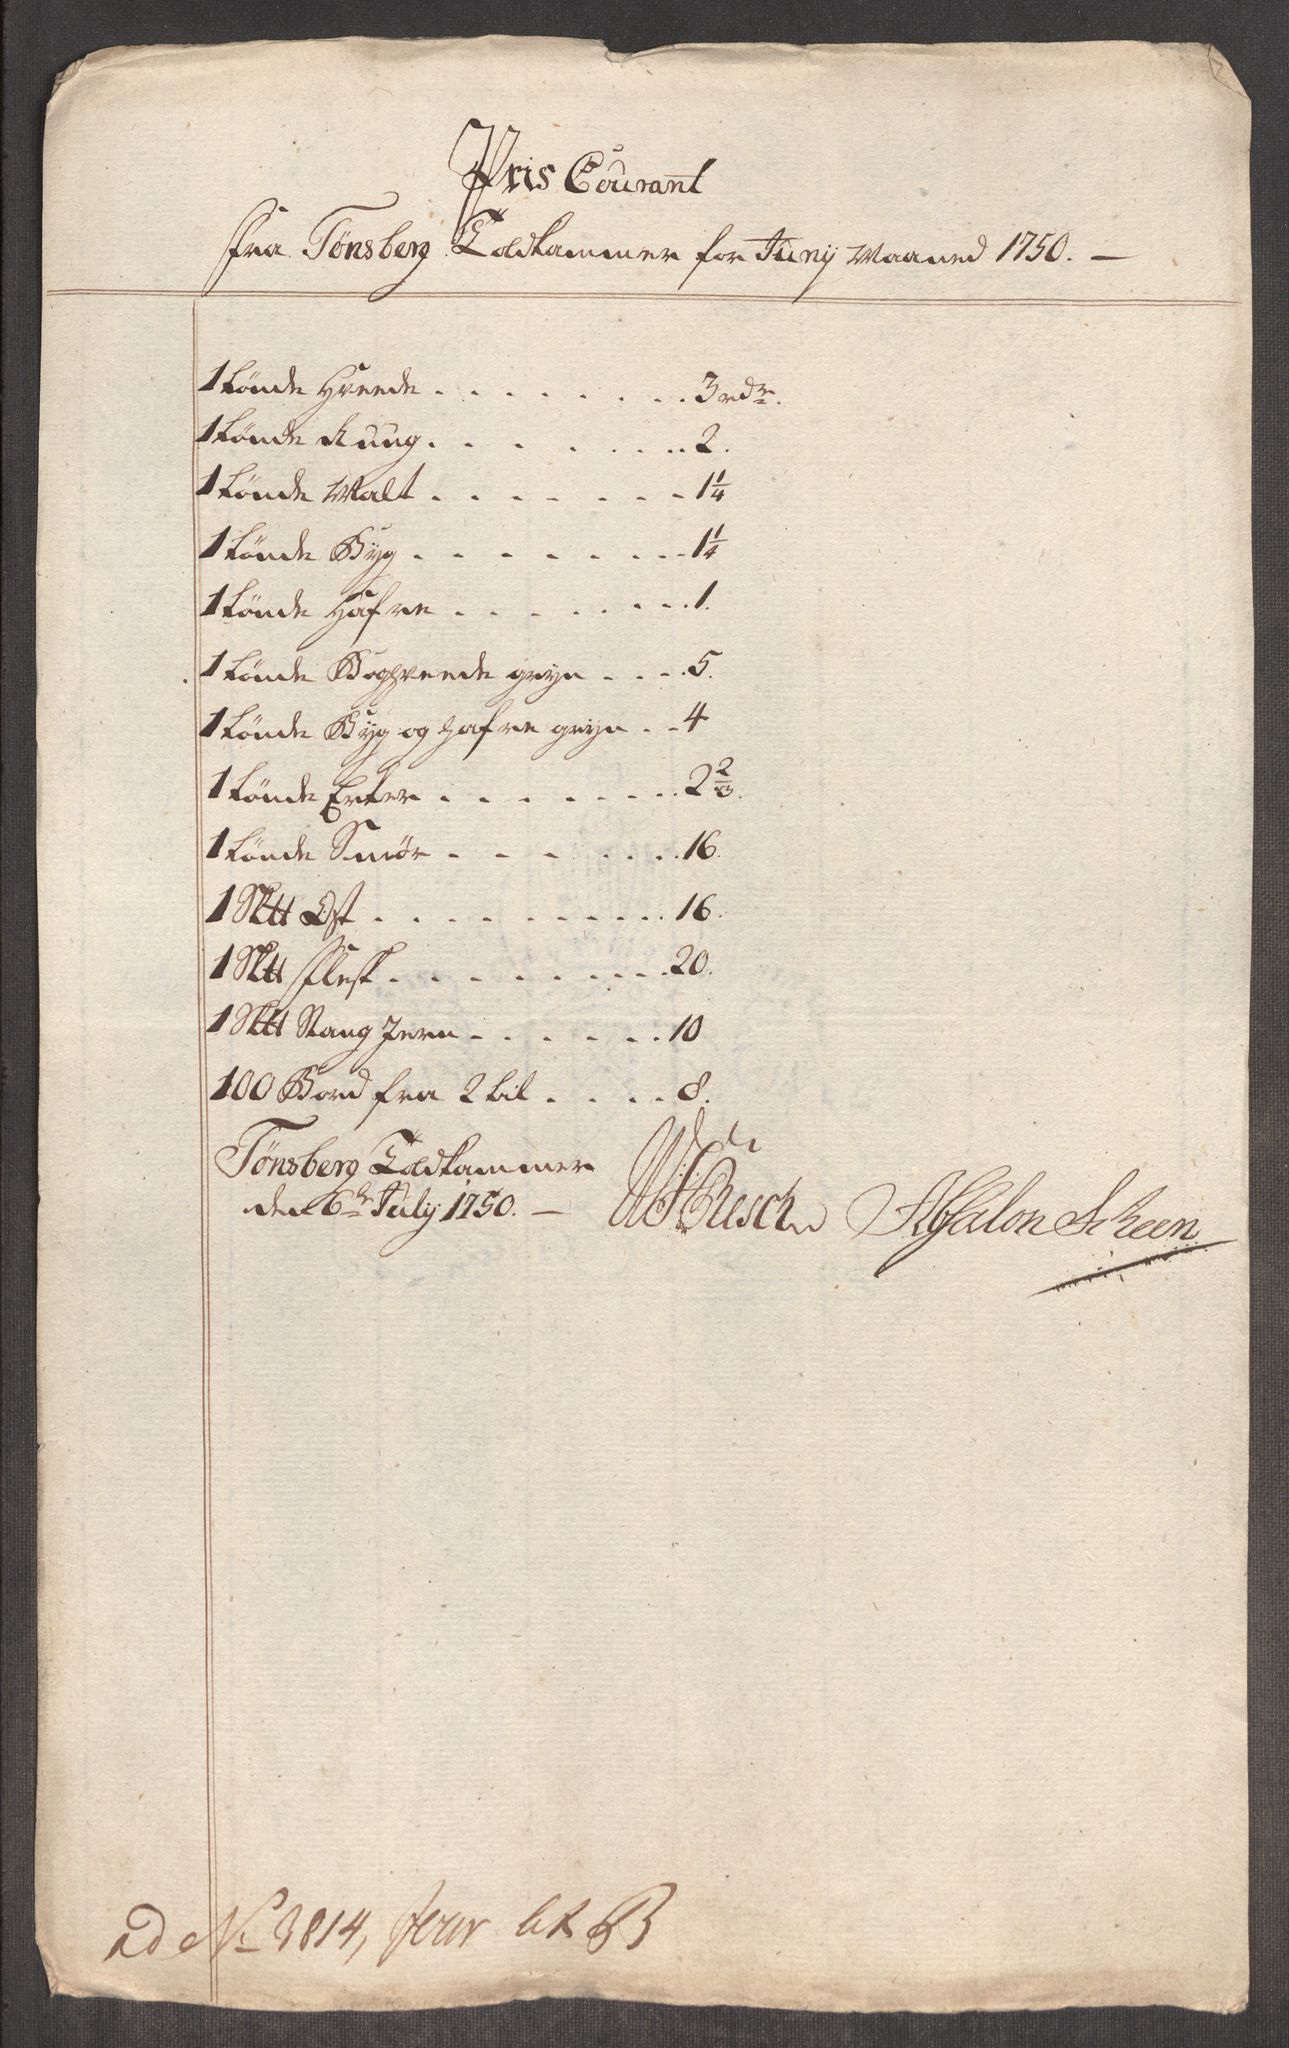 Pris Courant
fra Tønsberg Toldkammer for Juny Maaned 1750. —
1 tønde Hveede . . . . . . . . 3 rdr.
1 tønde Ruug . . . . . . . . 2.
1 tønde Malt . . . . . . . 1 1/4
1 tønde Byg . . . . . . . . 1 1/4
1 tønde Hafre . . . . . . . . 1.
1 tønde Boghveede gryn . . . . 5.
1 tønde Byg og Hafre gryn . . 4
1 tønde Erter . . . . . . . . 2 2/3.
1 tønde Smør . . . . . . . . 16.
1 S℔ Ost . . . . . . . . . . 16.
1 S℔ Flesk . . . . . . . . . 20.
1 S℔ Stang Jern . . . . . . . 10
100 Bord fra 2 til . . . . 8.
Tønsberg Toldkammer
den 6te July 1750. —
Resch Absalon Scheen
ad No 3814, Litr B